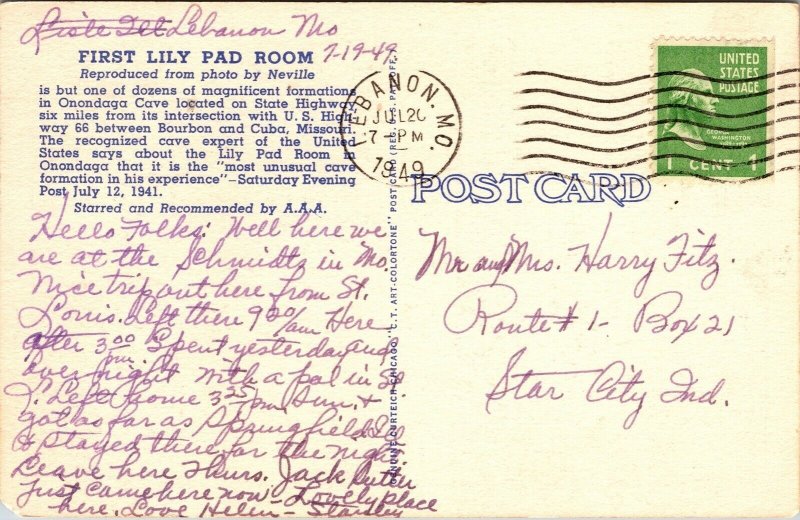 Lebanon Mo
7-19-49
FIRST LILY PAD ROOM
Reproduced from photo by Neville
is but one of dozens of magnificent formations
in Onondaga Cave located on State Highway,
six miles from its intersection with U.S. High-
way 66 between Bourbon and Cuba, Missouri.
The recognized cave expert of the United
States says about the Lily Pad Room in
Onondaga that it is the "most unusual cave
formation in his experience"—Saturday Evening
Post July 12, 1941.
Starred and Recommended by A.A.A.
Hello Folks: Well here we
are at the Schmidts in Mo.
Nice trip out here from St.
Louis. Left there 9 00/am Here
after 3 00 pm. Spent yesterday and
over night with a pal in St
L. Left home 3 25/pm Sun. &
got as far as Springfield Ill
& stayed there for the night
Leave here Thurs. Jack
just came here now - Lovely place
here. Love Helen -
GENUINE CURTEICH-CHICAGO "C.T. ART-COLORTONE" POST CARD (REG. U.S. PAT. OFF.)
LEBANON, MO.
JUL 20
7 PM
1949
UNITED
STATES
POSTAGE
GEORGE
WASHINGTON
1 CENT 1
POST CARD
Mr and Mrs. Harry Fitz.
Route #1- Box 21
Star City Ind.